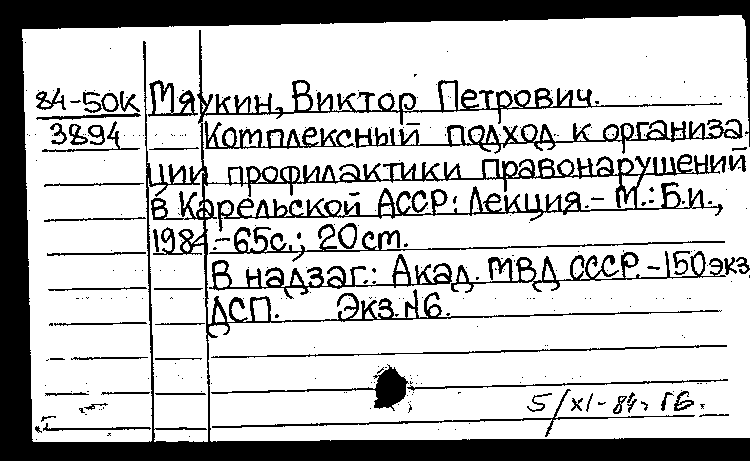 84-50К Мяукин, Виктор Петрович.
3894 Комплексный подход к организа-
ции профилактики правонарушений
в Карельской АССР: Лекция.- М.: Б.и.,
1984.-65с.; 20 cm.
В надзаг.: Акад. МВД СССР.-150экз
ДСП. Экз.№6.
5/XI-84г. ГБ.